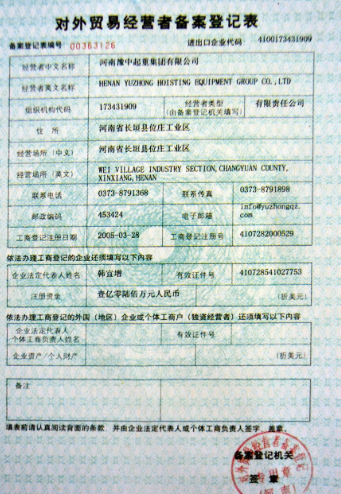 对外贸易经营者备案登记表
备案登记表编号 00363126 进出口企业代码 4100173431909
经营者中文名称 河南豫中起重集团有限公司
经营者英文名称 HENAN YUZHONG HOISTING EQUIPMENT GROUP CO.,LTD
组织机构代码 173431909 经营者类型 (由备案登记机关填写) 有限责任公司
住 所 河南省长垣县位庄工业区
经营场所(中文) 河南省长垣县位庄工业区
经营场所(英文) WEI VILLAGE INDUSTRY SECTION,CHANGYUAN COUNTY,
XINXIANG,HENAN
联系电话 0373-8791368 联系传真 0373-8791898
邮政编码 453424 电子邮箱 info@yuzhongqz.
com
工商登记注册日期 2005-03-28 工商登记注册号 4107282000529
依法办理工商登记的企业还须填写以下内容
企业法定代表人姓名 韩宜增 有效证件号 410728541027753
注册资金 壹亿零陆佰万元人民币 (折美元)
依法办理工商登记的外国(地区)企业或个体工商户(独资经营者)还须填写以下内容
企业法定代表人/
个体工商负责人姓名 有效证件号
企业资产/个人财产 (折美元)
备注
填表前请认真阅读背面的条款 并由企业法定代表人或个体工商负责人签字、盖章。
备案登记机关
签 章